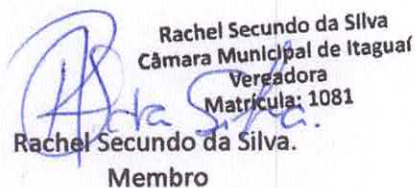 Rachel Secundo da Silva
Câmara Municipal de Itaguaí
Vereadora
Matrícula: 1081
Silva.
Rachel Secundo da Silva.
Membro